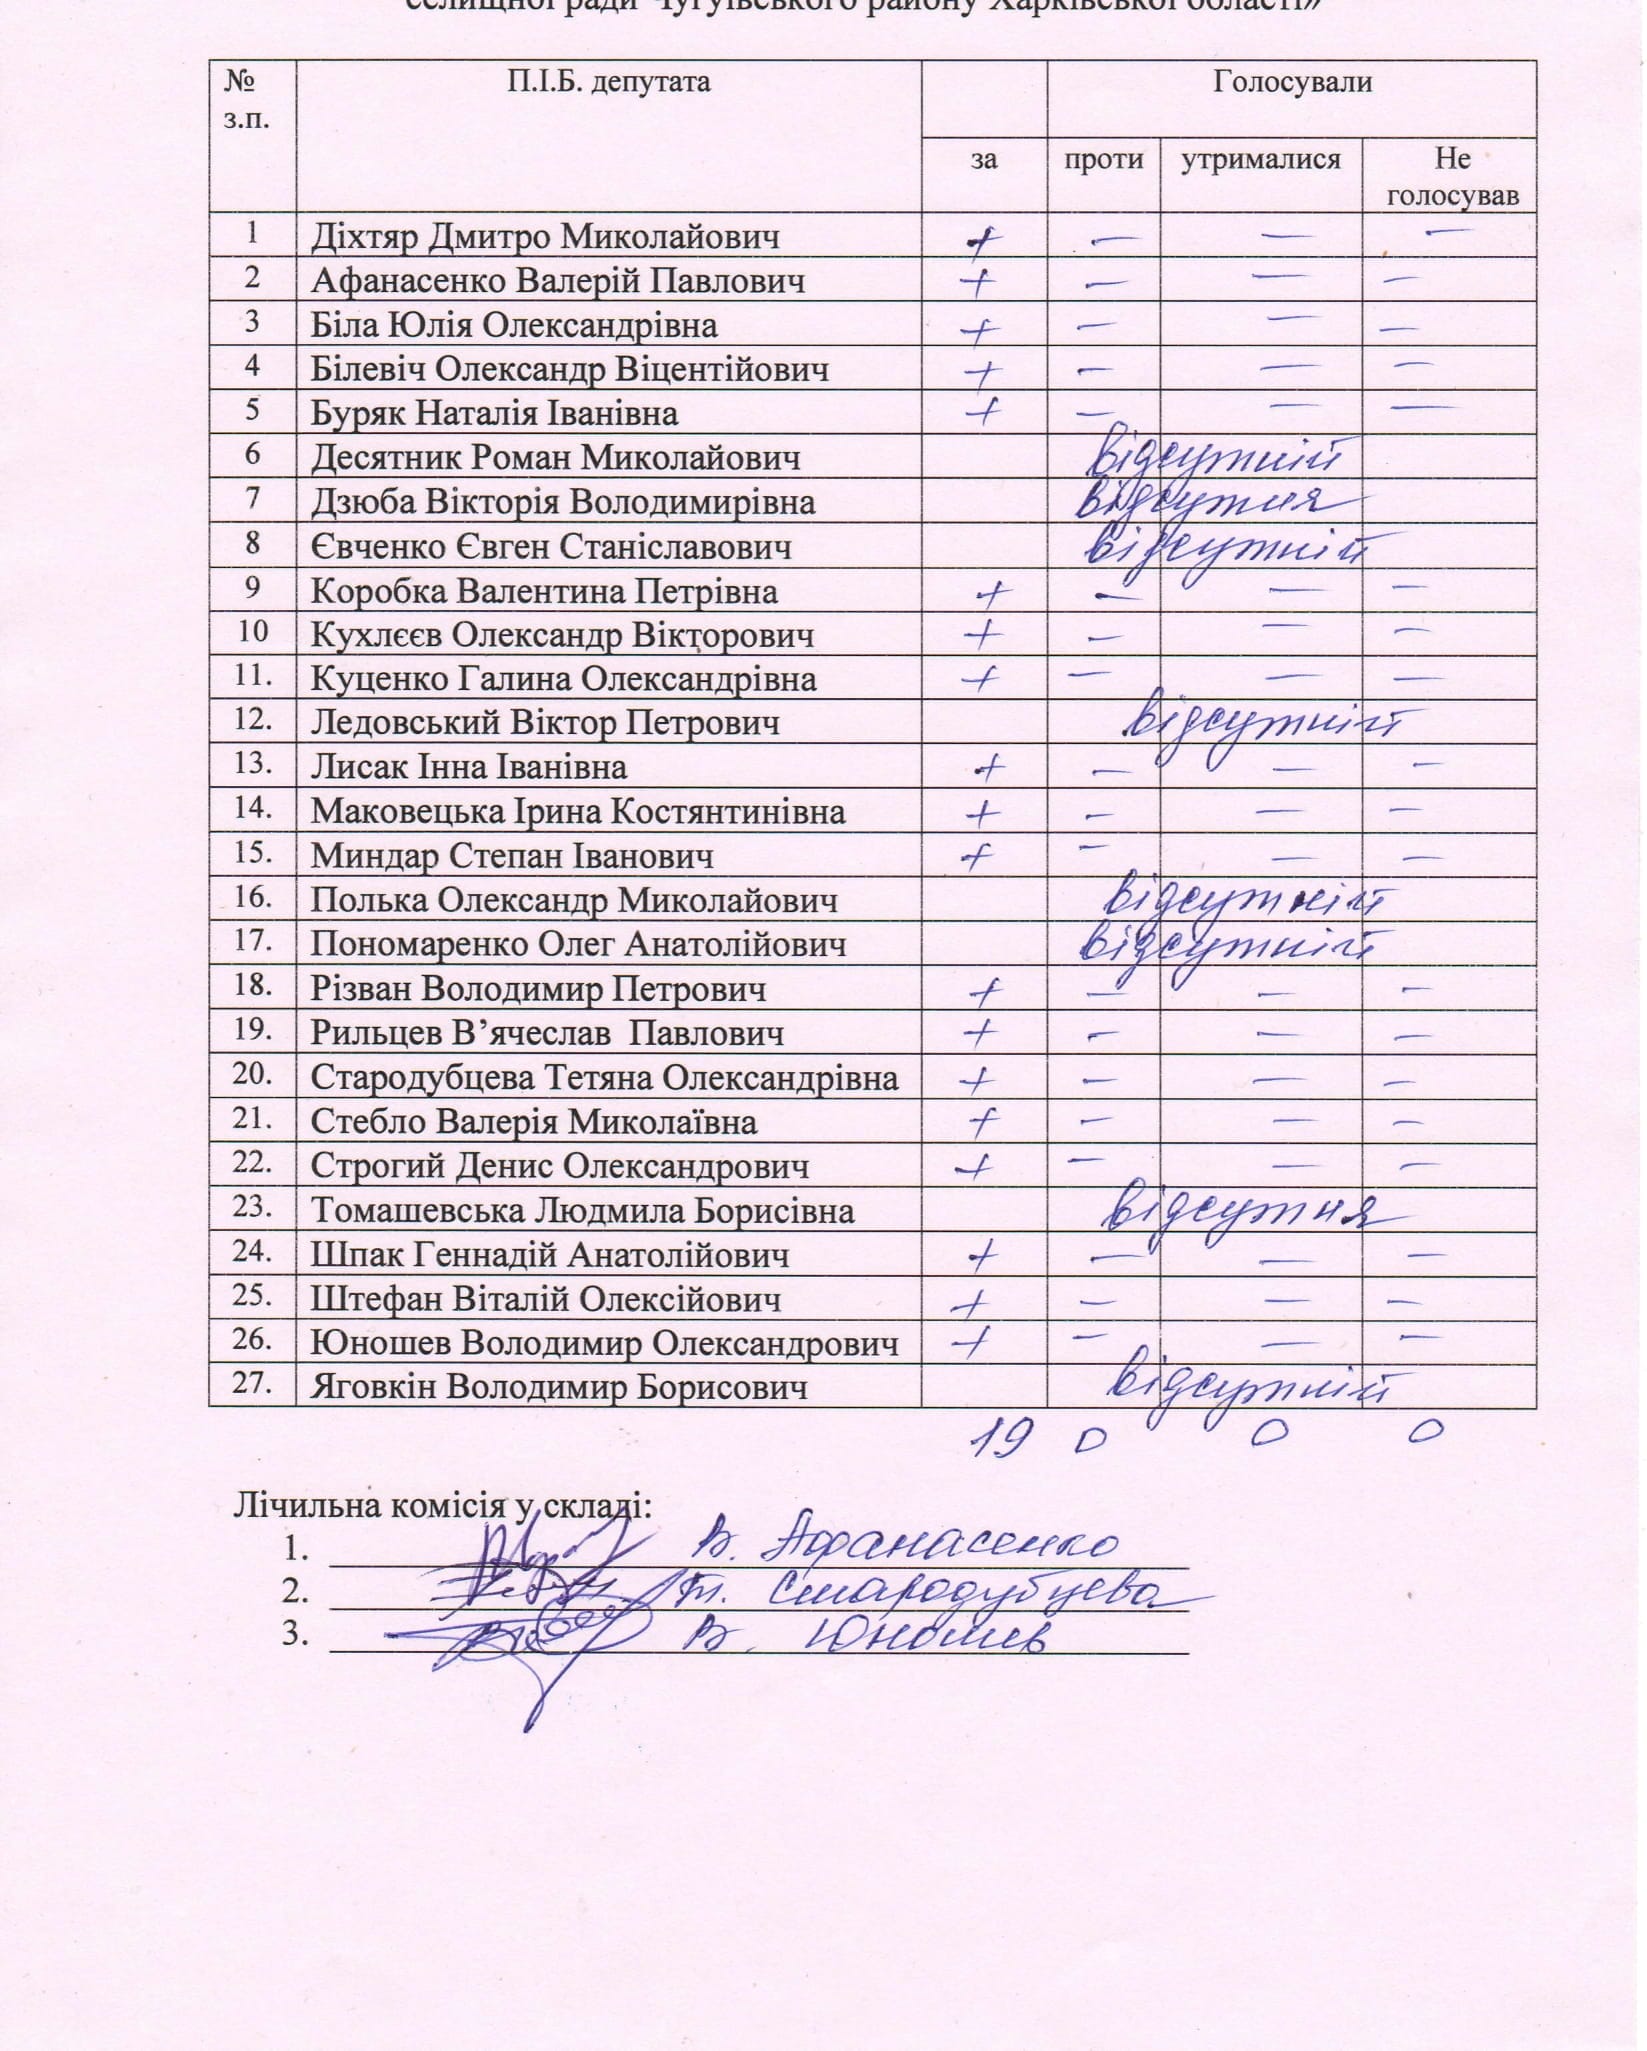 селищної ради Чугуївського району Харківської області»
№ з.п. П.І.Б. депутата Голосували
за проти утрималися Не голосував
1 Діхтяр Дмитро Миколайович + — — —
2 Афанасенко Валерій Павлович + — — —
3 Біла Юлія Олександрівна + — — —
4 Білевіч Олександр Віцентійович + — — —
5 Буряк Наталія Іванівна + — — —
6 Десятник Роман Миколайович відсутній
7 Дзюба Вікторія Володимирівна відсутня
8 Євченко Євген Станіславович відсутній
9 Коробка Валентина Петрівна + — — —
10 Кухлєєв Олександр Вікторович + — — —
11. Куценко Галина Олександрівна + — — —
12. Ледовський Віктор Петрович відсутній
13. Лисак Інна Іванівна + — — —
14. Маковецька Ірина Костянтинівна + — — —
15. Миндар Степан Іванович + — — —
16. Полька Олександр Миколайович відсутній
17. Пономаренко Олег Анатолійович відсутній
18. Різван Володимир Петрович + — — —
19. Рильцев В’ячеслав Павлович + — — —
20. Стародубцева Тетяна Олександрівна + — — —
21. Стебло Валерія Миколаївна + — — —
22. Строгий Денис Олександрович + — — —
23. Томашевська Людмила Борисівна відсутня
24. Шпак Геннадій Анатолійович + — — —
25. Штефан Віталій Олексійович + — — —
26. Юношев Володимир Олександрович + — — —
27. Яговкін Володимир Борисович відсутній
19 0 0 0
Лічильна комісія у складі:
1. В. Афанасенко
2. Т. Стародубцева
3. В. Юношев